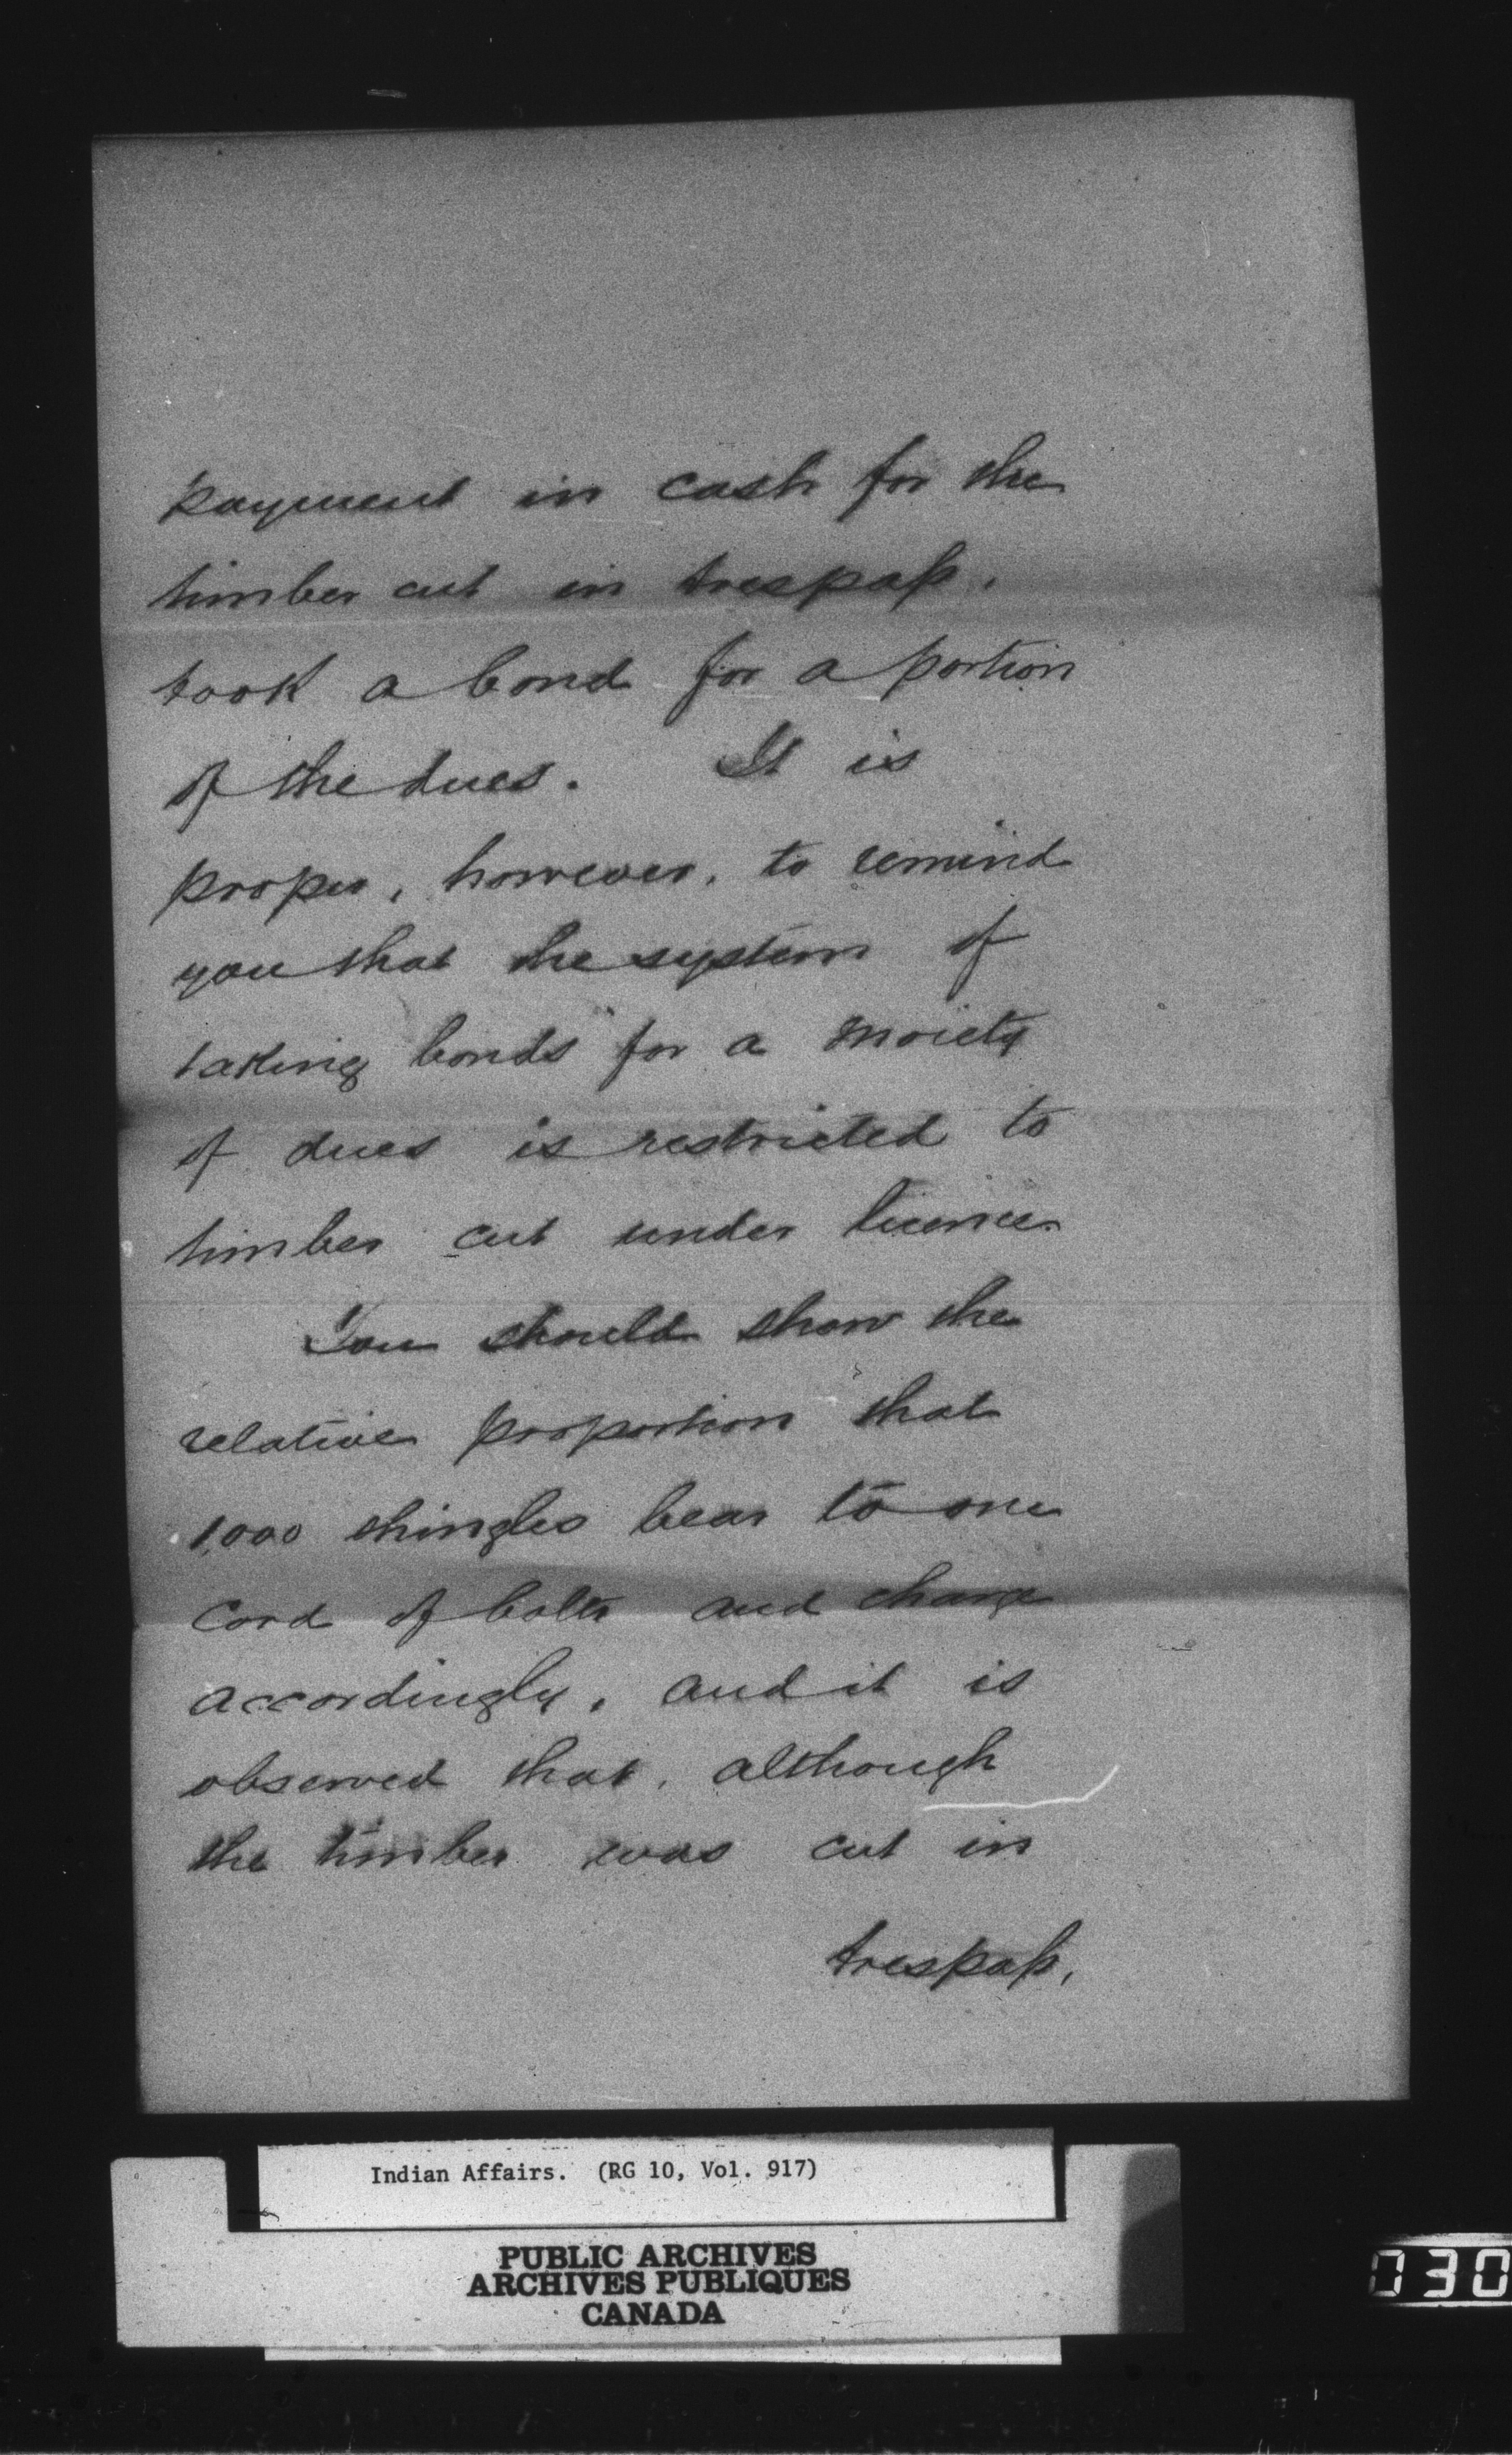 payment in cash for the
timber cut in trespass,
took a bond for a portion
of the dues. It is
proper, however, to remind
you that the system of
taking bonds for a moiety
of dues is restricted to
timber cut under license.
You should show the
relative proportion that
1,000 shingles bear to one
cord of bolts and charge
accordingly, and it is
observed that, although
the timber was cut in
trespass,
Indian Affairs. (RG 10, Vol. 917)
PUBLIC ARCHIVES
ARCHIVES PUBLIQUES
CANADA
030